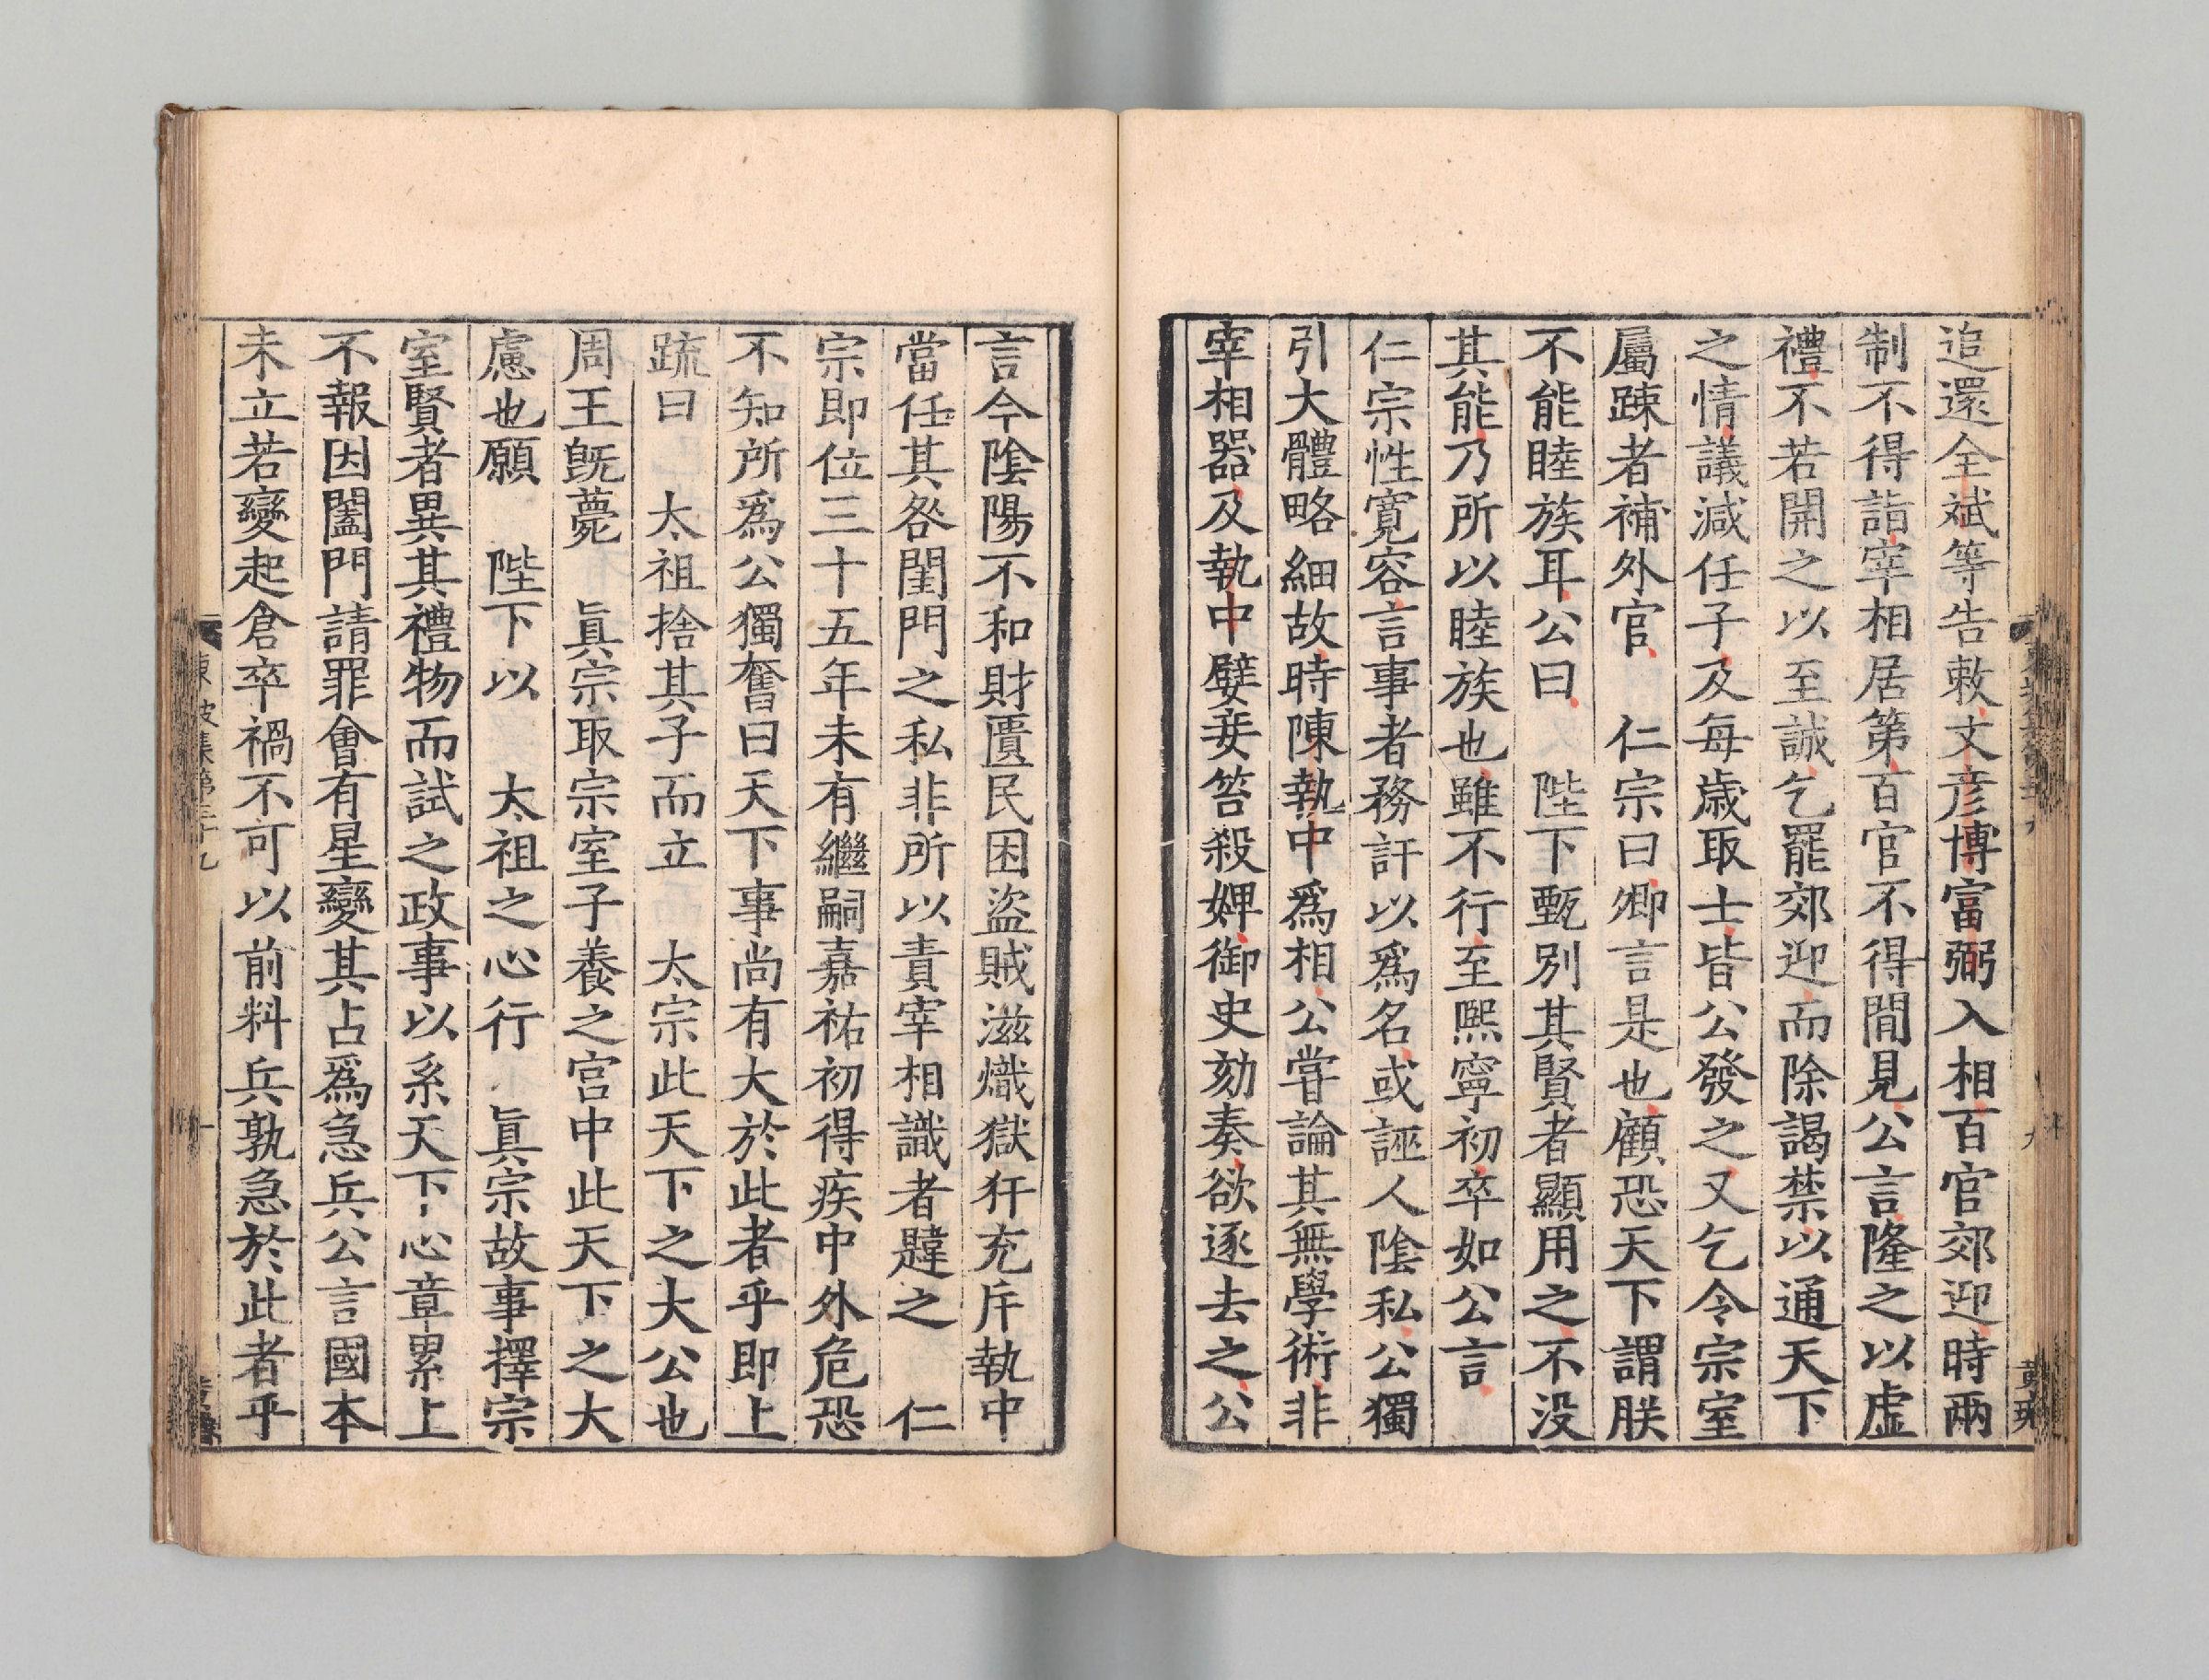 追還全斌等告敕文彦博富弼入相百官郊迎時兩
制不得詣宰相居第百官不得間見公言隆之以虚
禮不若開之以至誠乞罷郊迎而除謁禁以通天下
之情議減任子及每歳取士皆公發之又乞令宗室
屬踈者補外官　仁宗曰卿言是也顧恐天下謂朕
不能睦族耳公曰　陛下甄别其賢者顯用之不没
其能乃所以睦族也雖不行至熈寧初卒如公言
仁宗性寛容言事者務訐以爲名或誣人陰私公獨
引大體略細故時陳執中爲相公嘗論其無學術非
宰相器及執中嬖妾笞殺婢御史劾奏欲逐去之公
言今陰陽不和財匱民困盗賊滋熾獄犴充斥執中
當任其咎閨門之私非所以責宰相識者韙之　仁
宗即位三十五年未有繼嗣嘉祐初得疾中外危恐
不知所爲公獨奮曰天下事尚有大於此者乎即上
疏曰　太祖捨其子而立　太宗此天下之大公也
周王旣薨　眞宗取宗室子養之宫中此天下之大
慮也願　陛下以　太祖之心行　眞宗故事擇宗
室賢者異其禮物而試之政事以系天下心章累上
不報因闔門請罪會有星變其占爲急兵公言國本
未立若變起倉卒禍不可以前料兵孰急於此者乎
東坡集第三十九